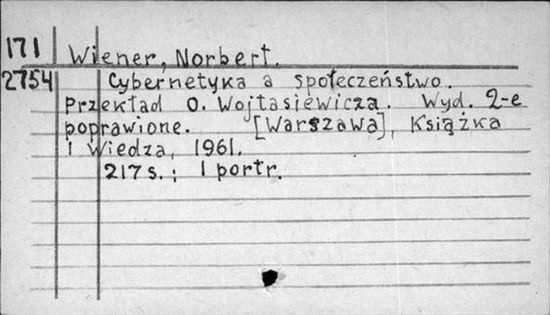 171 Wiener, Norbert.
2754 Cybernetyka a społeczeństwo.
Przekład O. Wojtasiewicza. Wyd. 2-e
poprawione. [Warszawa], Książka
i Wiedza, 1961.
217 s.; 1 portr.